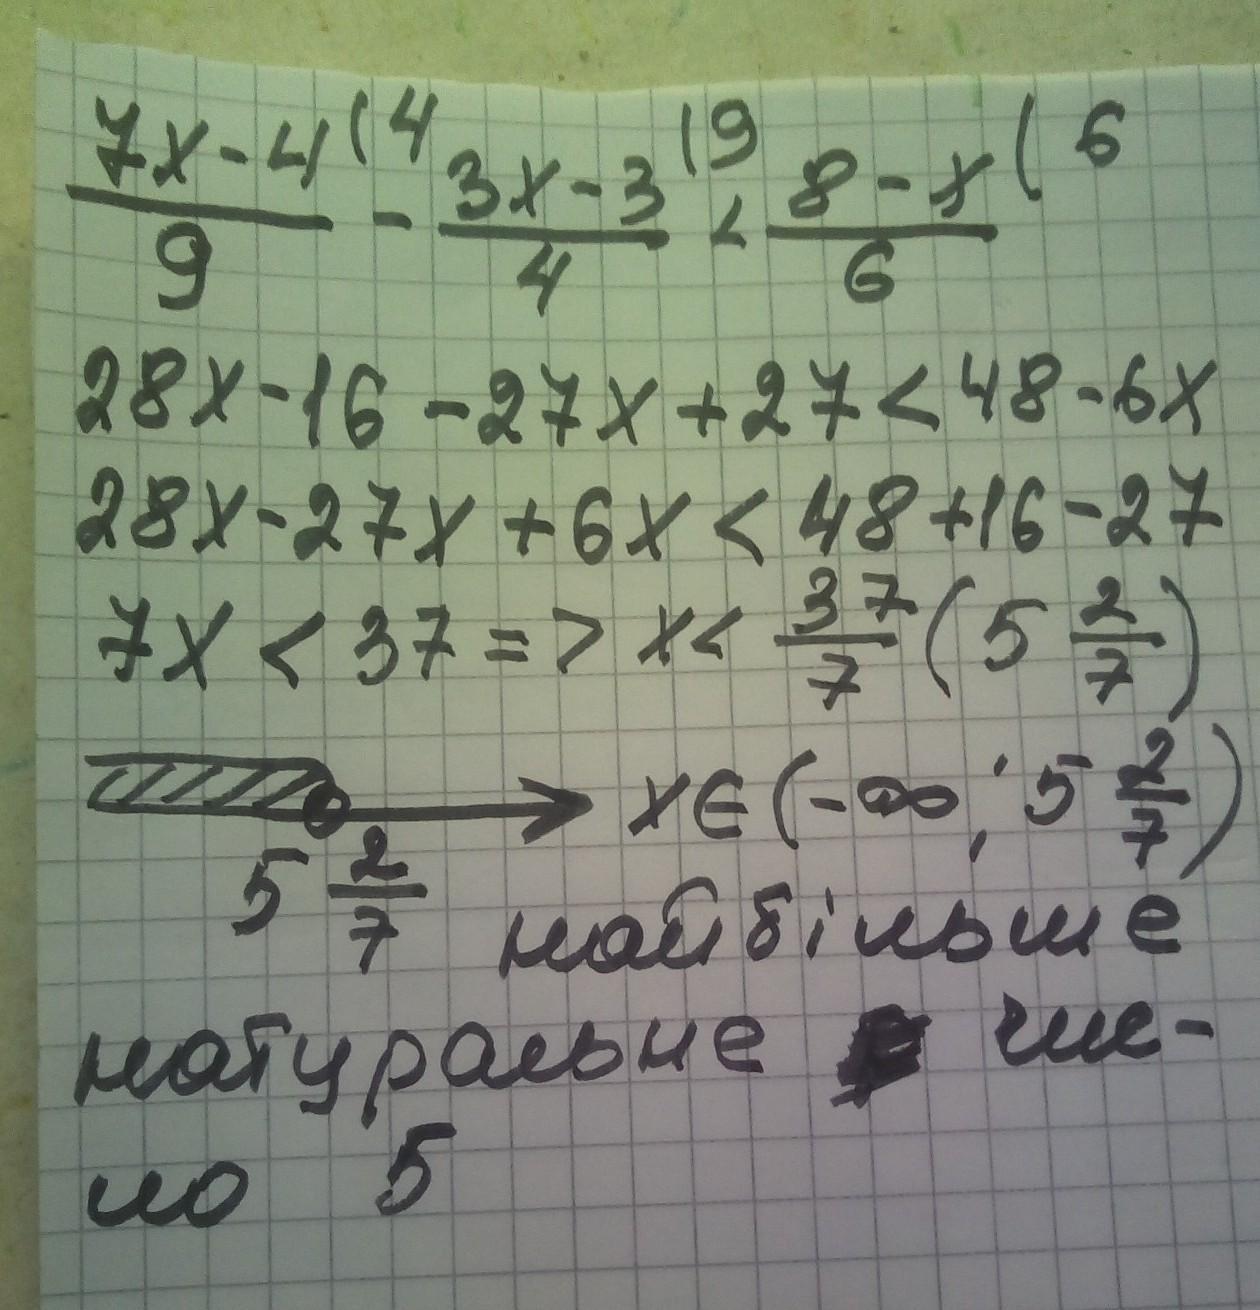 (7x-4)/9 (4 - (3x-3)/4 (9 < (8-x)/6 (6
28x-16-27x+27<48-6x
28x-27x+6x<48+16-27
7x<37=>x<37/7(5 2/7)
5 2/7 x∈(-∞;5 2/7)
найбільше
натуральне чис-
ло 5